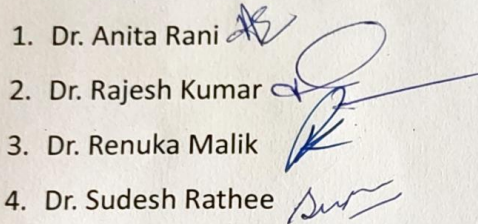 1. Dr. Anita Rani
2. Dr. Rajesh Kumar
3. Dr. Renuka Malik
4. Dr. Sudesh Rathee